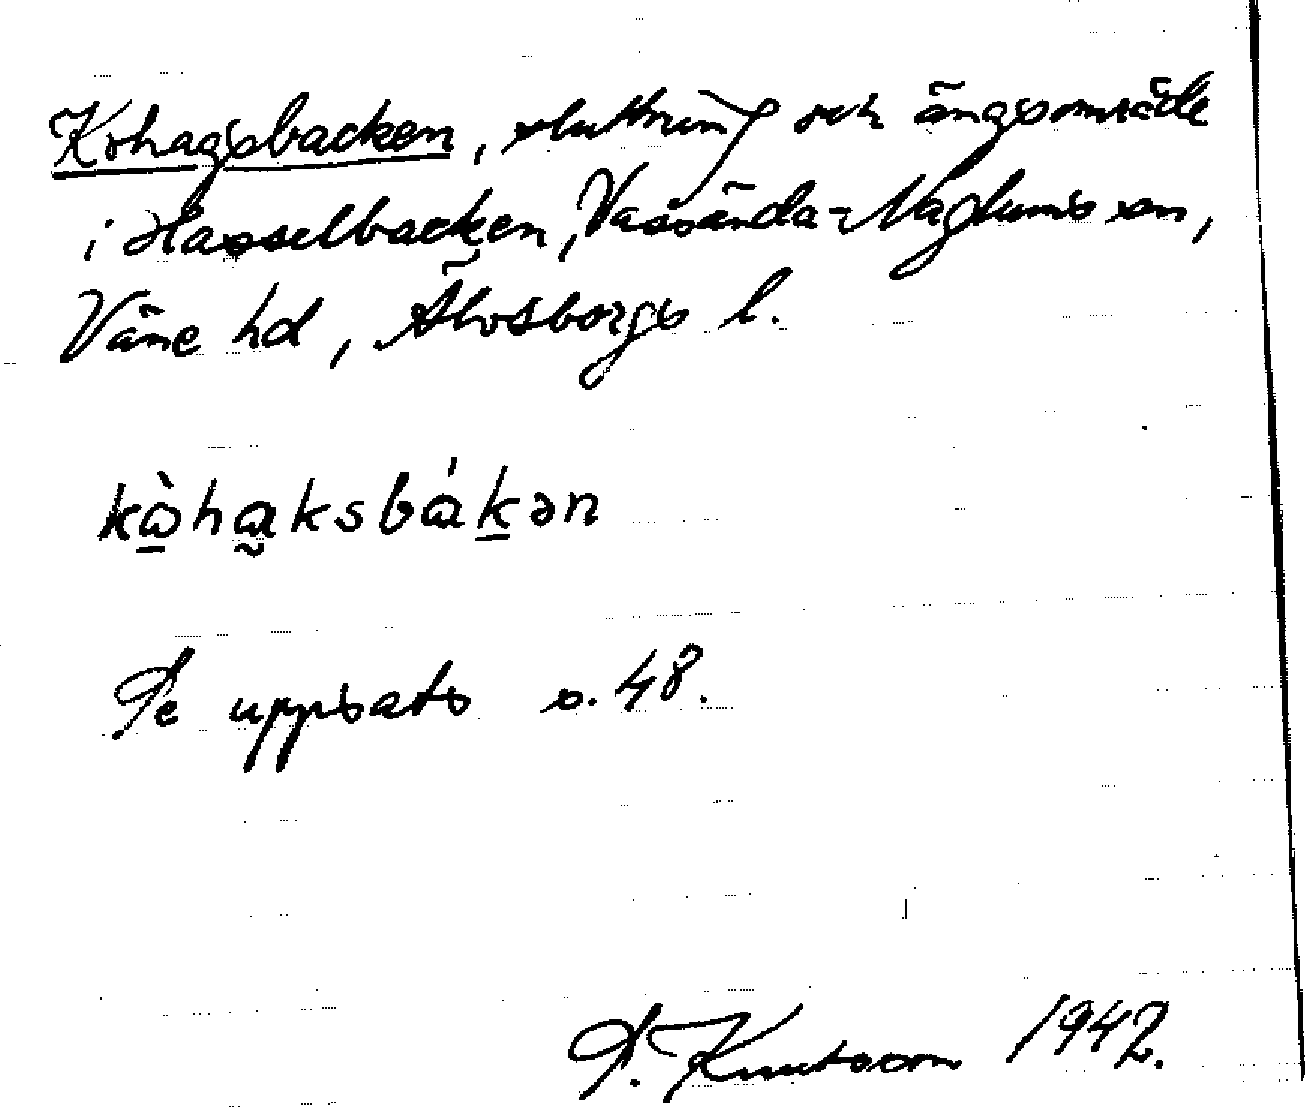 Kohagsbacken, sluttning och ängsområde
i Hasselbacken, Vassända-Naglums sn,
Väne hd, Älvsborgs l.
kὼhａ̰ksbákən
Se uppsats s. 48.
S. Knutsson 1942.